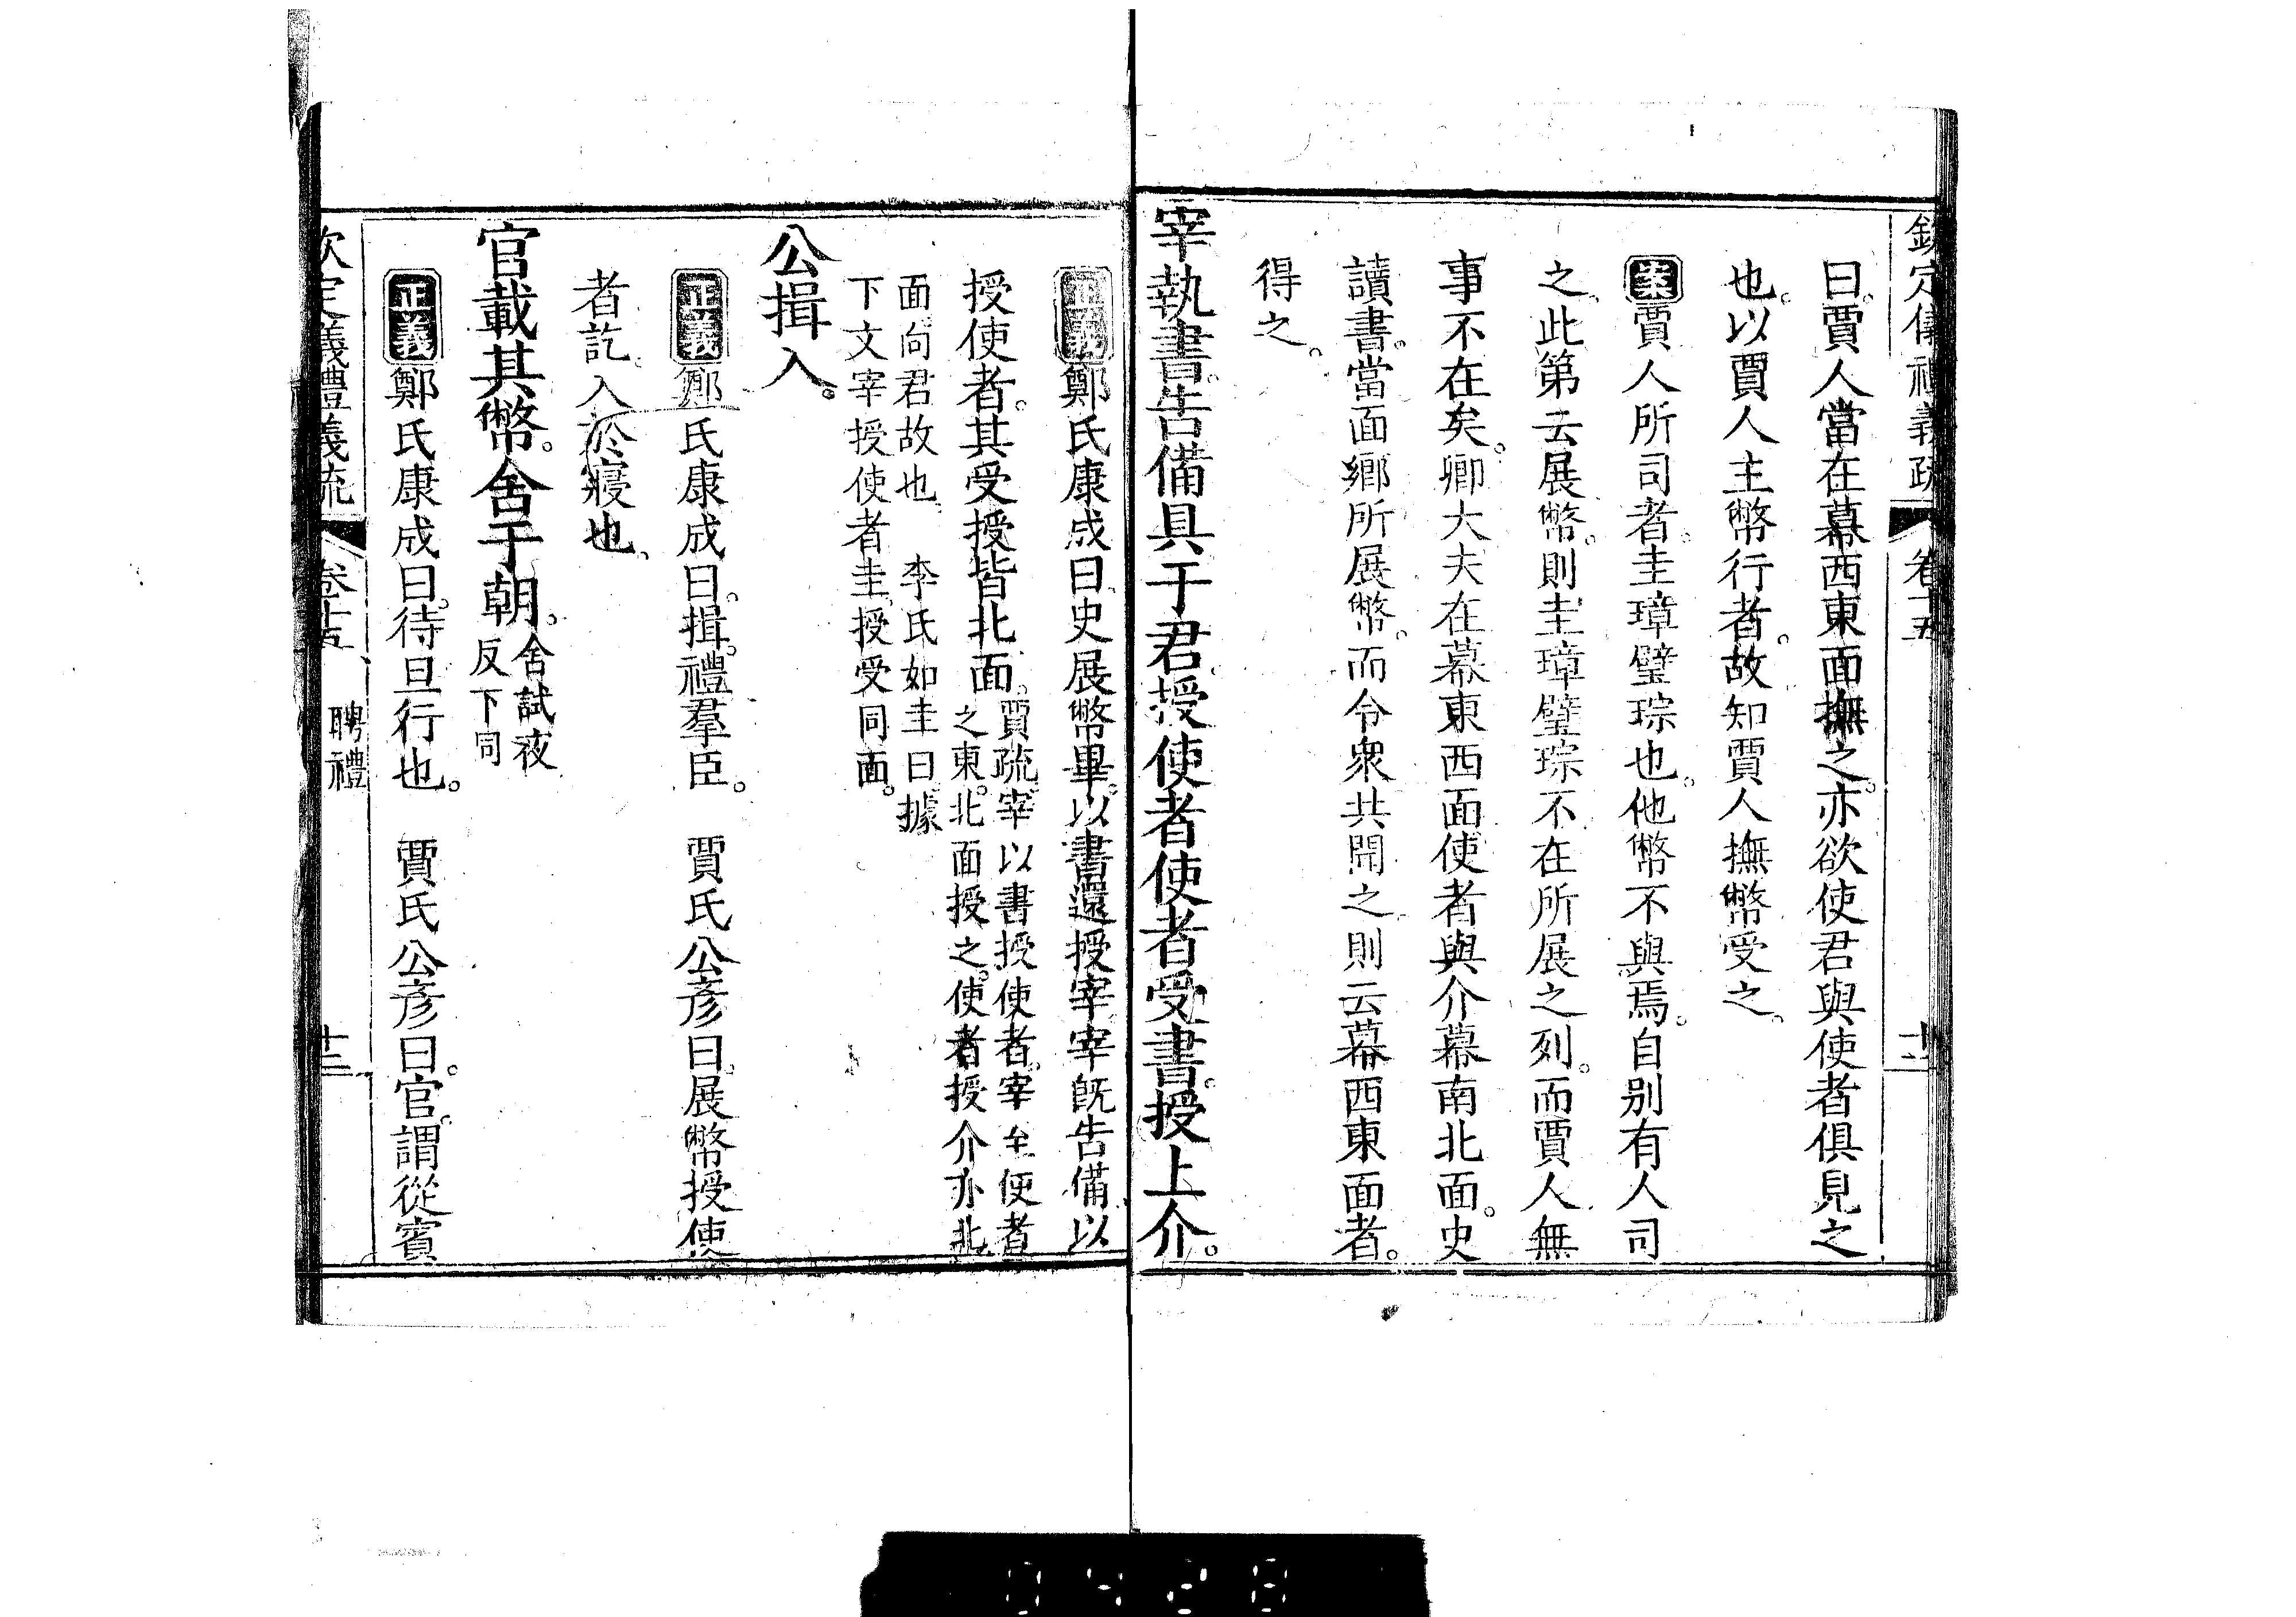 欽定儀禮義疏 卷十五
曰。賈人當在幕西東面撫之。亦欲使君與使者俱見之
也。以賈人主幣行者。故知賈人撫幣受之。
案賈人所司者。圭璋璧琮也。他幣不與焉。自别有人司
之。此第云展幣。則圭璋璧琮不在所展之列。而賈人無
事不在矣。卿大夫在幕東西面使者與介幕南北面。史
讀書。當面鄉所展幣。而令衆共聞之則云幕西東面者。
得之。
宰執書告備具于君。授使者使者受書。授上介。
正義鄭氏康成曰。史展幣畢。以書還授宰宰既告備以
授使者。其受授皆北面。
賈疏。宰以書授使者。宰至使者
之東。北面授之。使者授介亦北
面。向君故也。 李氏如圭曰。據
下文宰授使者圭。授受同面。
公揖入。
正義鄭氏康成曰。揖。禮羣臣。 賈氏公彥曰。展幣授使
者訖。入於寢也。
官載其幣。舍于朝。
舍試夜
反下同
正義鄭氏康成曰。待旦行也。 賈氏公彥曰。官。謂從賓
欽定儀禮義疏 卷十五 聘禮 十三
0428